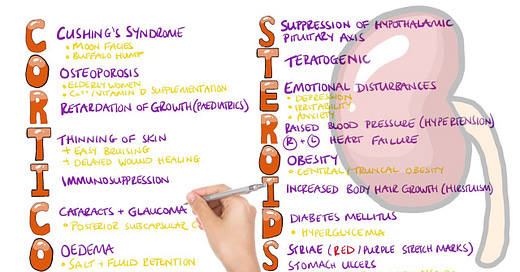 CORTICO
CUSHING'S SYNDROME
• MOON FACIES
• BUFFALO HUMP
OSTEOPOROSIS
• ELDERLY WOMEN
• Ca++/VITAMIN D SUPPLEMENTATION
RETARDATION OF GROWTH (PAEDIATRICS)
THINNING OF SKIN
+ EASY BRUISING
+ DELAYED WOUND HEALING
IMMUNOSUPPRESSION
CATARACTS + GLAUCOMA
• POSTERIOR SUBCAPSULAR
OEDEMA
• SALT + FLUID RETENTION
STEROIDS
SUPPRESSION OF HYPOTHALAMIC
PITUITARY AXIS
TERATOGENIC
EMOTIONAL DISTURBANCES
• DEPRESSION
• IRRITABILITY
• ANXIETY
RAISED BLOOD PRESSURE (HYPERTENSION)
R + L HEART FAILURE
OBESITY
• CENTRAL/TRUNCAL OBESITY
INCREASED BODY HAIR GROWTH (HIRSTUISM)
DIABETES MELLITUS
• HYPERGLYCEMIA
STRIAE (RED/PURPLE STRETCH MARKS)
STOMACH ULCERS